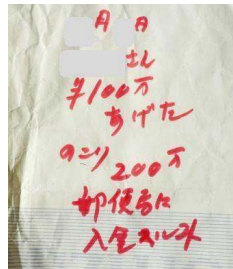 月 日
さん
¥100万
あげた
のこり
200万
郵便局に
入金スル